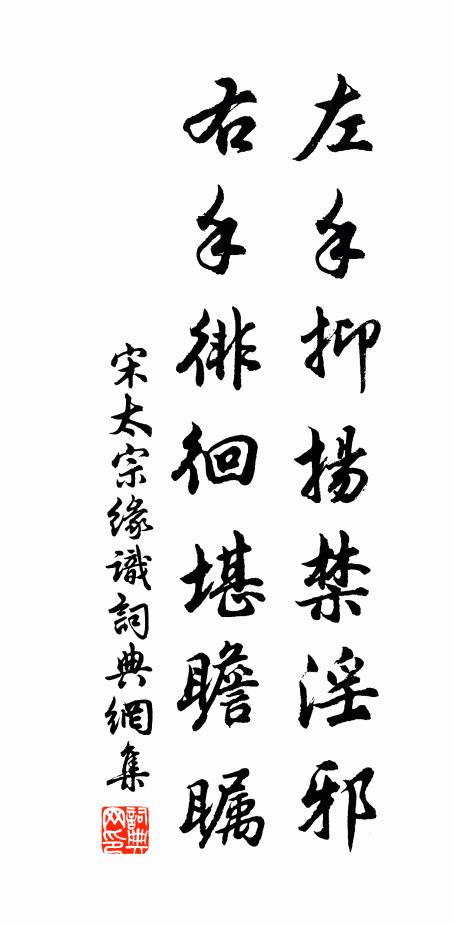 左手抑揚禁淫邪
右手徘徊堪瞻矚
宋太宗緣識詞典網集
詞典网印